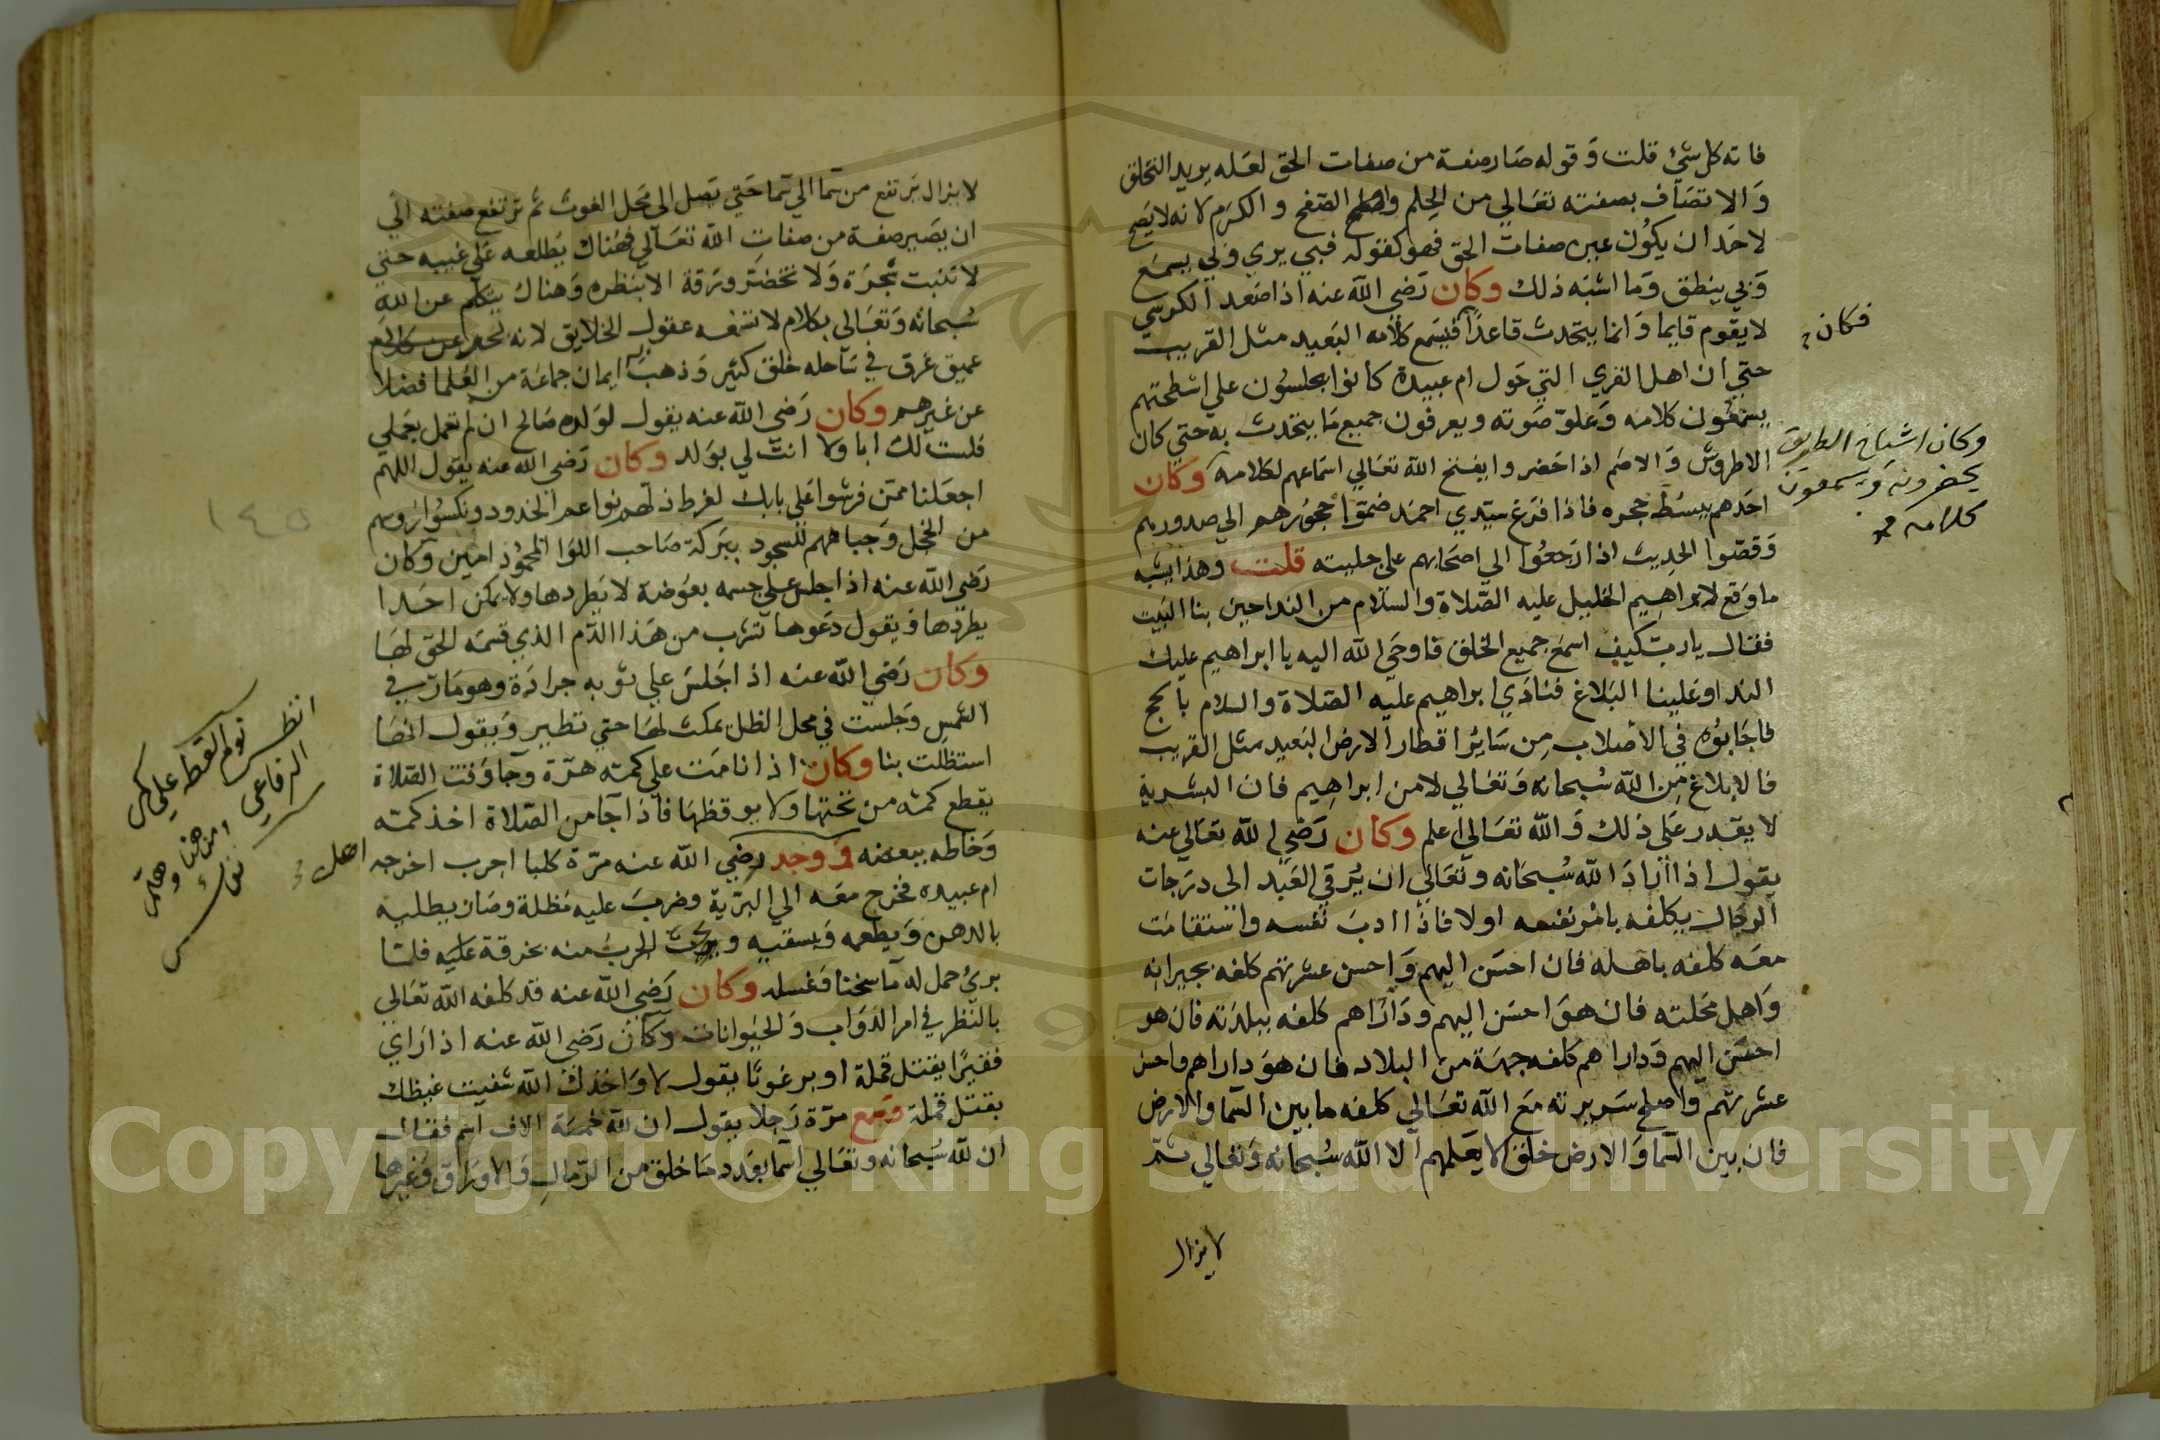 فاته كل شئ قلت وقوله صار صفة من صفات الحق لعله يريد التخلق
والاتصاف بصفته تعالي من الحلم والصفح والكرم لانه لا يصح
لاحد ان يكون عين صفات الحق فهو كقوله فبي يري وبي يسمع
وبي ينطق وما اشبه ذلك وكان رضي الله عنه اذا صعد الكرسي
لا يقوم قايما وانما يتحدث قاعدا فيسمع كلامه البعيد مثل القريب
حتي ان اهل القري التي حول ام عبيدة كانوا يجلسون علي اسطحتهم
يسمعون كلامه وعلو صوته ويعرفون جميع ما يتحدث به حتي كان
الاطروش والاصم اذا حضروا يفتح الله تعالي اسماعهم لكلامه وكان
احدهم يبسط حجره فاذا فرغ سيدي احمد ضموا حجورهم الي صدورهم
وقصوا الحديث اذا رجعوا الي اصحابهم علي جليته قلت وهذا يشبه
ما وقع لابراهيم الخليل عليه الصلاة والسلام من الندا حين بنا البيت
فقال يا رب كيف اسمع جميع الخلق فاوحي الله اليه يا ابراهيم عليك
الندا وعلينا البلاغ فنادي ابراهيم عليه الصلاة والسلام بالحج
فاجابوه في الاصلاب من سائر اقطار الارض البعيد مثل القريب
فالابلاغ من الله سبحانه وتعالي لا من ابراهيم فان البشرية
لا يقدر علي ذلك والله تعالي اعلم وكان رضي الله تعالي عنه
يقول اذا اراد الله سبحانه وتعالي ان يرقي العبد الى درجات
الرجال يكلفه بامر نفسه اولا فاذا ادب نفسه واستقامت
معه كلفه باهله فان احسن اليهم واحسن عشرتهم كلفه بجيرانه
واهل محلته فان هو احسن اليهم وداراهم كلفه ببلدته فان هو
احسن اليهم وداراهم كلفه جهة من البلاد فان هو داراهم واحسن
عشرتهم واصلح سريرته مع الله تعالي كلفه ما بين السما والارض
فان بين السما والارض خلقا لا يعلمهم الا الله سبحانه وتعالي ثم
لا يزال
فكان
وكان اشياخ الطريق
يحضرونه ويسمعون
كلامه
لا يزال يرتفع من سما الي سما حتي يصل الى محل الغوث ثم ترتفع صفته الي
ان يصير صفة من صفات الله تعالي فهناك يطلعه علي غيبه حتي
لا تنبت شجرة ولا تخضر ورقة الا بنظره وهناك يتكلم عن الله
سبحانه وتعالى بكلام لا تسعه عقول الخلايق لانه بحر
عميق غرق في ساحله خلق كثير وذهب به ايمان جماعة من العلما فضلا
عن غيرهم وكان رضي الله عنه يقول لولده صالح ان لم تعمل بعملي
فلست لك ابا ولا انت لي بولد وكان رضي الله عنه يقول اللهم
اجعلنا ممن فرشوا علي بابك لفرط ذلهم نواعم الخدود ونكسوا رؤسهم
من الخجل وجباههم للسجود ببركة صاحب اللوا المحمود امين وكان
رضي الله عنه اذا جلس علي جسمه بعوضة لا يطردها ولا يمكن احدا
يطردها ويقول دعوها تشرب من هذا الدم الذي قسمه الحق لها
وكان رضي الله عنه اذا جلس علي ثوبه جرادة وهو مار في
الشمس وجلست في محل الظل يمكث لها حتي تطير ويقول انها
استظلت بنا وكان اذا نامت علي كمه هرة وجا وقت الصلاة
يقطع كمه من تحتها ولا يوقظها فاذا جا من الصلاة اخذ كمه
وخاطه ببعضه ووجد رضي الله عنه مرة كلبا اجرب اخرجه
ام عبيدة فخرج معه الي البرية وضرب عليه مظلة وصار يطليه
بالدهن ويطعمه ويسقيه ويحت الجرب منه بخرقة عليه فلما
بري حمل له ما سخنا فغسله وكان رضي الله عنه قد كلفه الله تعالي
بالنظر في امر الدواب والحيوانات وكان رضي الله عنه اذا راي
فقيرا يقتل قملة او برغوثا يقول لا واخذك الله شفيت غيظك
بقتل قملة وسمع مرة رجلا يقول ان لله خمسة الاف اسم فقال
ان لله سبحانه وتعالي اسما بعدد ما خلق من الرمال والاوراق وغيرها
انظر نوم القطه علي كم
الرفاعي
اهل
١٤٥
Copyright © King Saud University